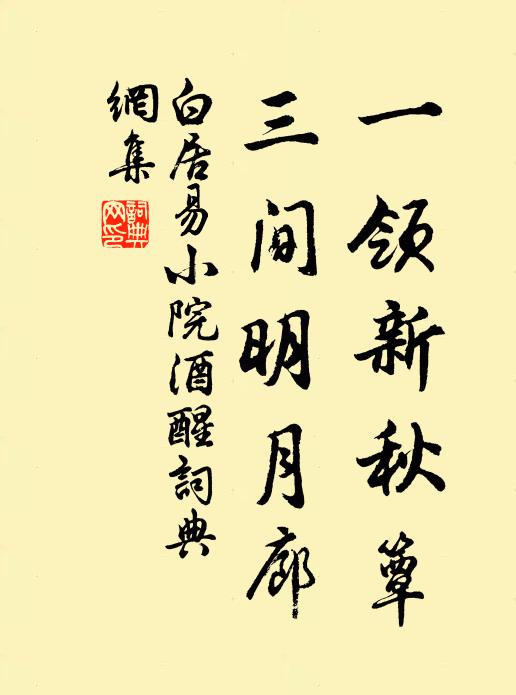 一領新秋簟
三間明月廊
白居易小院酒醒詞典
網集
詞典
网印